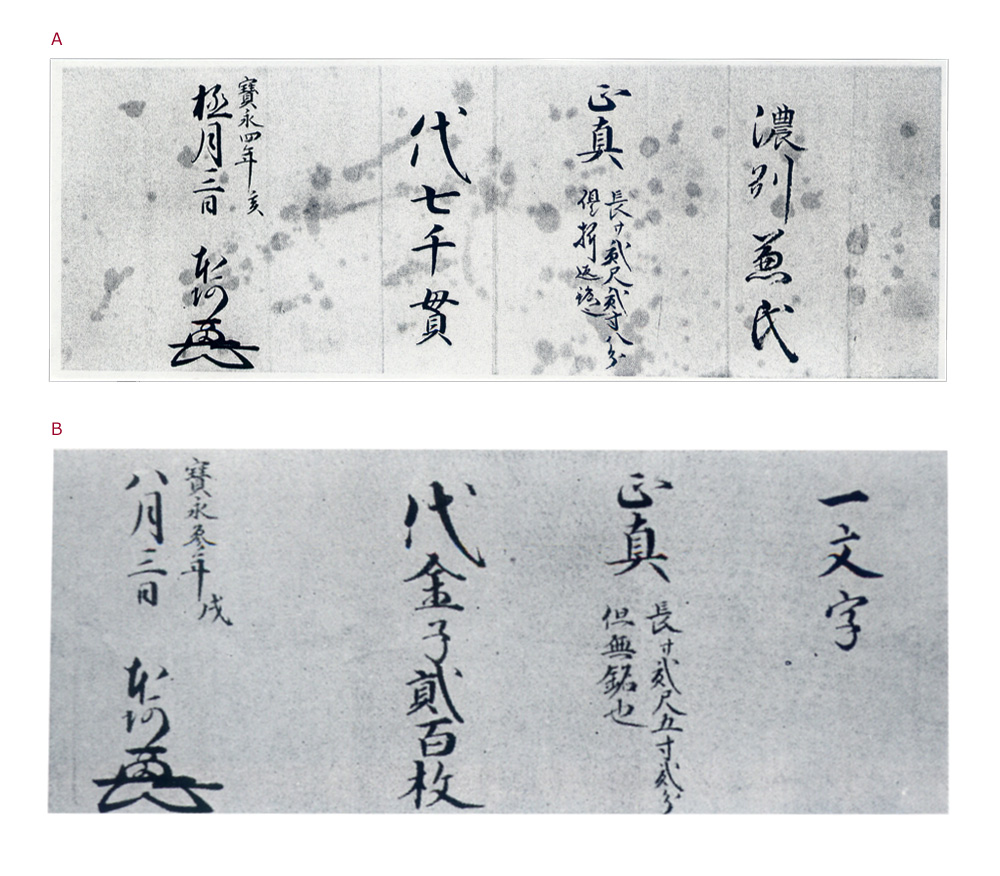 A
濃州
兼氏
正真
長サ貳尺貳寸八分
代七千貫
寳永四年亥
極月三日
本阿
B
一文字
正真
長サ貳尺五寸貳分
但無銘也
代金子貳百枚
寳永参年戌
八月三日
本阿